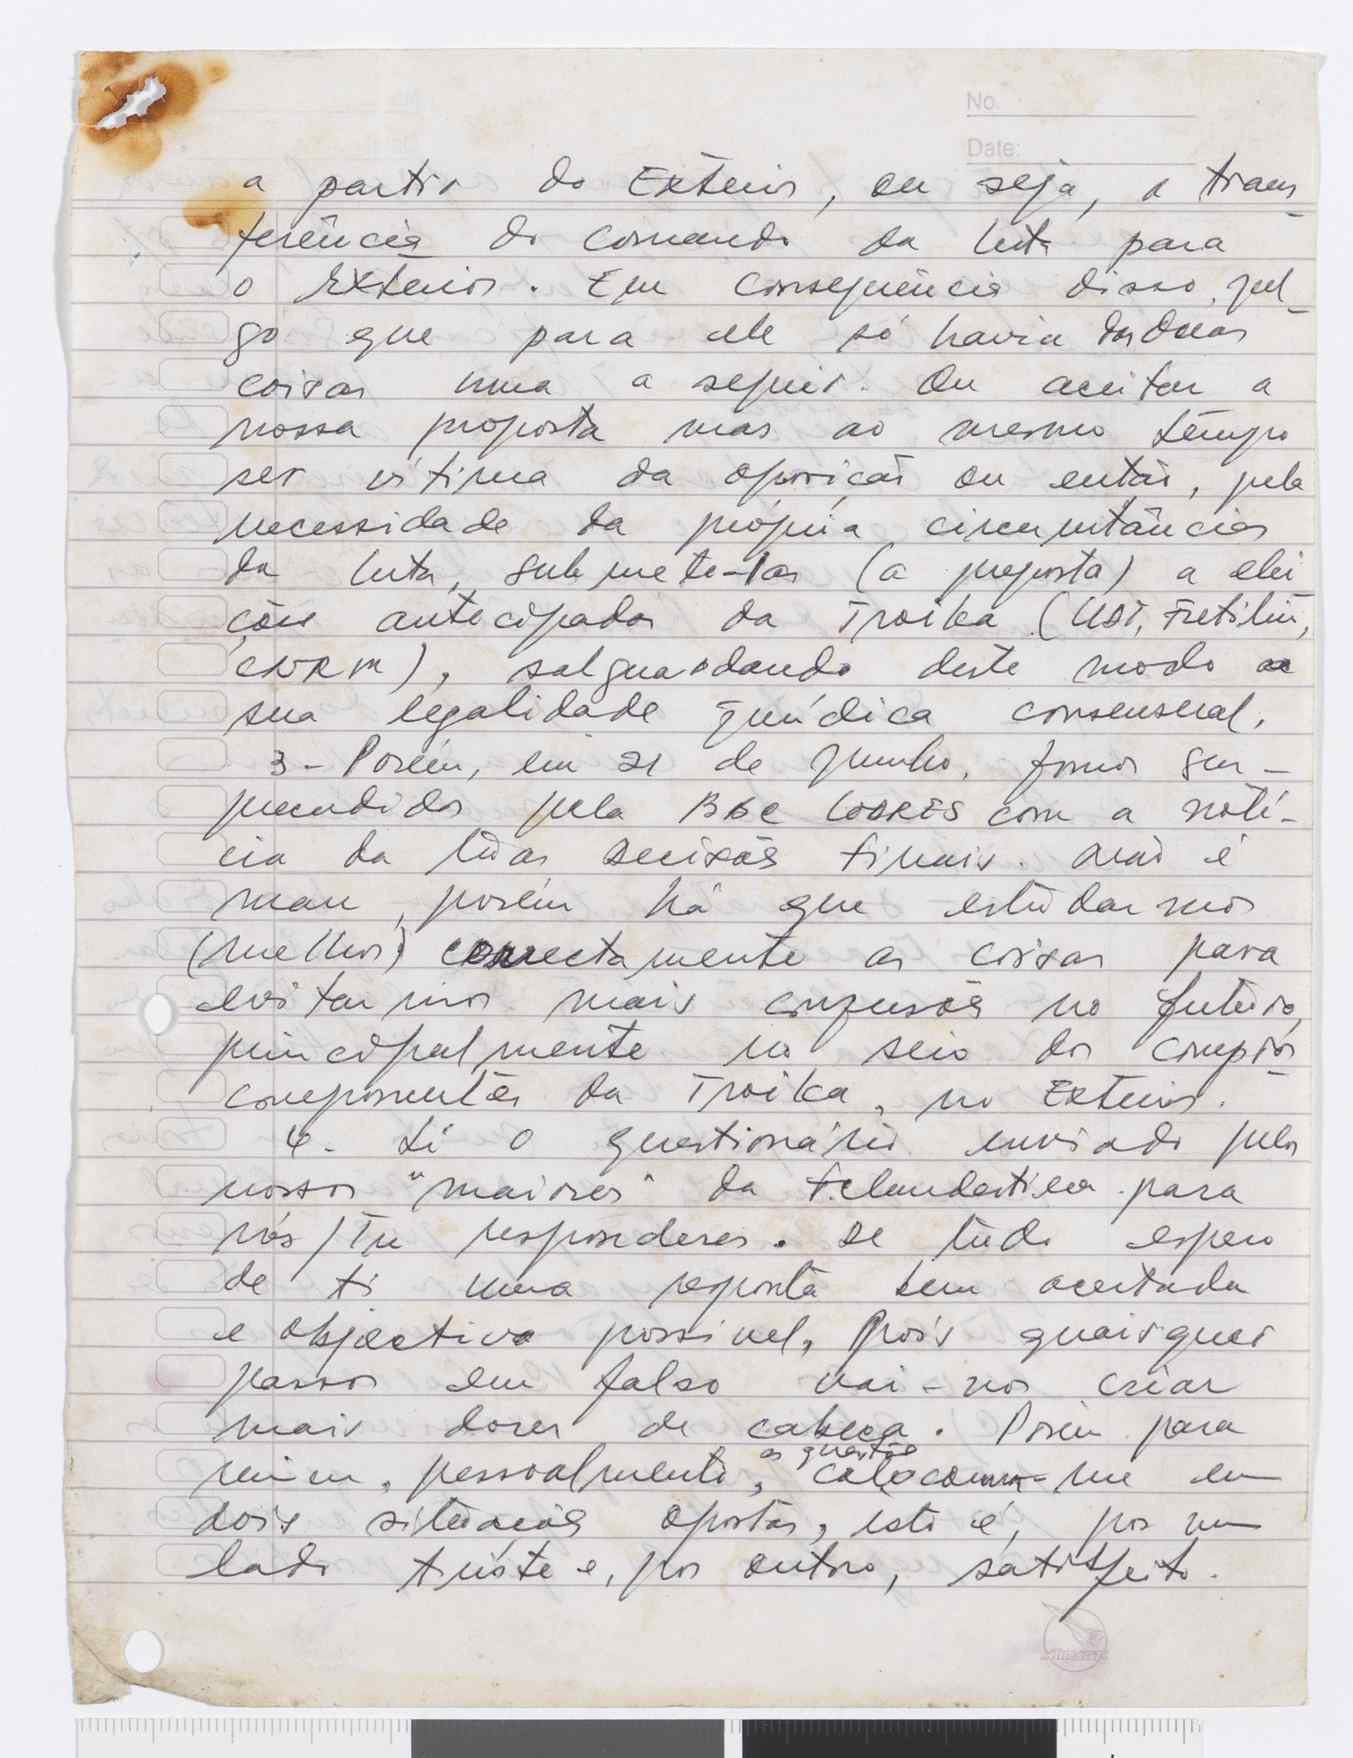 No.
Date:
a partir do Exterior, ou seja, a trans
ferência do comando da luta para
o Exterior. Em consequência disso, jul-
go que para ele só havia das duas
coisas uma a seguir. Ou aceitar a
nossa proposta mas ao mesmo tempo
ser vítima da oposição ou então, pela
necessidade da própria circunstâncias
da luta, submete-las (a proposta) a elei
ções antecipadas da Troika (UDT, Fretilin,
CNRM), salguardando deste modo a
sua legalidade jurídica consensual.
3- Porém, em 21 de Junho, fomos sur-
preendidos pela BBC LODRES com a notí-
cia da tuas decisões finais. Não é
mau, porém há que estudarmos
(melhor) correctamente as coisas para
evitarmos mais confusões no futuro,
principalmente no seio dos
componentes da Troika, no Exterior.
4- Li o questionário enviado pelos
nossos "maiores" da F. clandestina para
nós/Tu responderes. De tudo espero
de ti uma resposta bem acertada
e objectiva possivel, pois quaisquer
passos em falso vai-nos criar
mais dores de cabeça. Porém para
mim, pessoalmente, as questões
coloca-me em
dois situações opostas, isto é, por um
lado triste e, por outro, satisfeito.